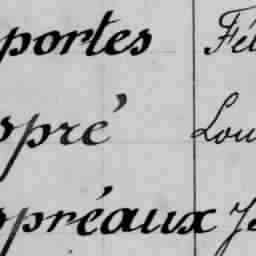 portes Fél
spré Lou
spréaux